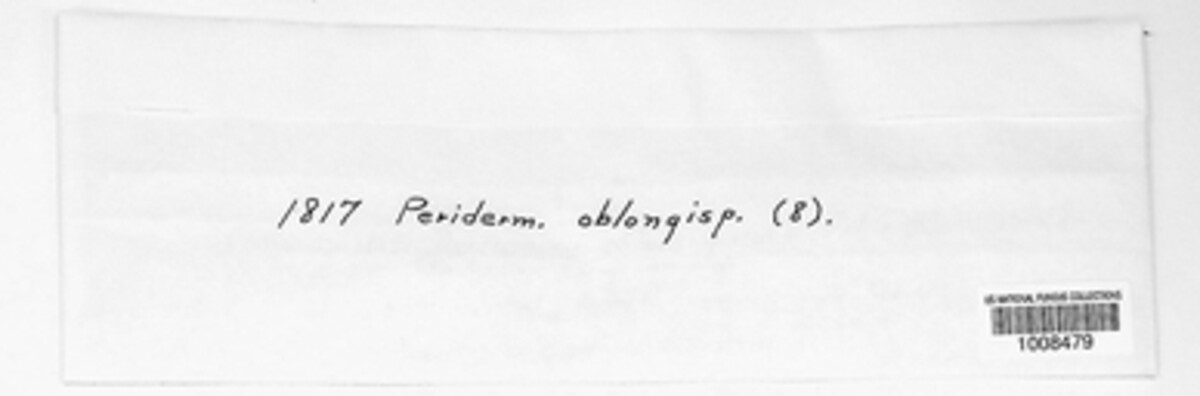 1817 Periderm. oblongisp. (8).
US NATIONAL FUNGUS COLLECTIONS
1008479